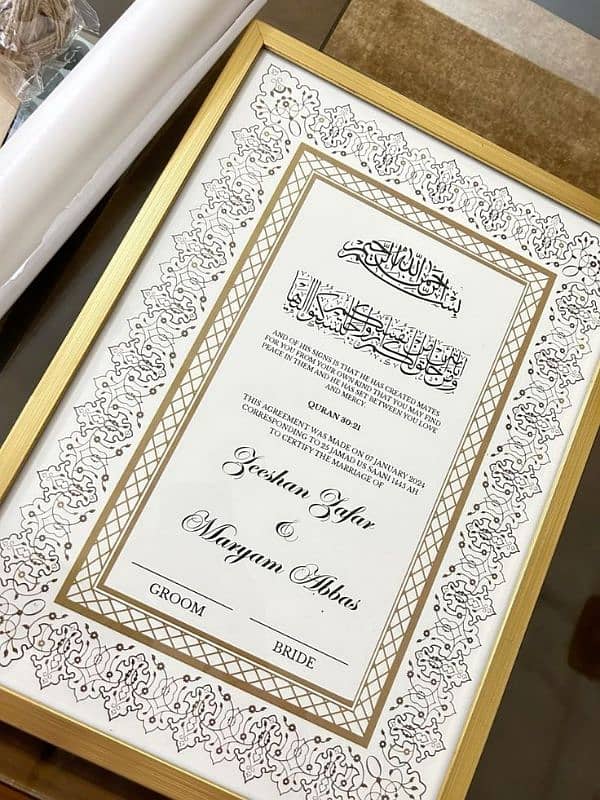 بسم الله الرحمن الرحيم
ومن آياته أن خلق لكم من أنفسكم أزواجا لتسكنوا إليها
AND OF HIS SIGNS IS THAT HE HAS CREATED MATES
FOR YOU FROM YOUR OWN KIND THAT YOU MAY FIND
PEACE IN THEM AND HE HAS SET BETWEEN YOU LOVE
AND MERCY.
QURAN 30:21
THIS AGREEMENT WAS MADE ON 07 JANUARY 2024
CORRESPONDING TO 25 JAMAD US SAANI 1445 AH
TO CERTIFY THE MARRIAGE OF
Zeeshan Zafar
&
Maryam Abbas
GROOM
BRIDE